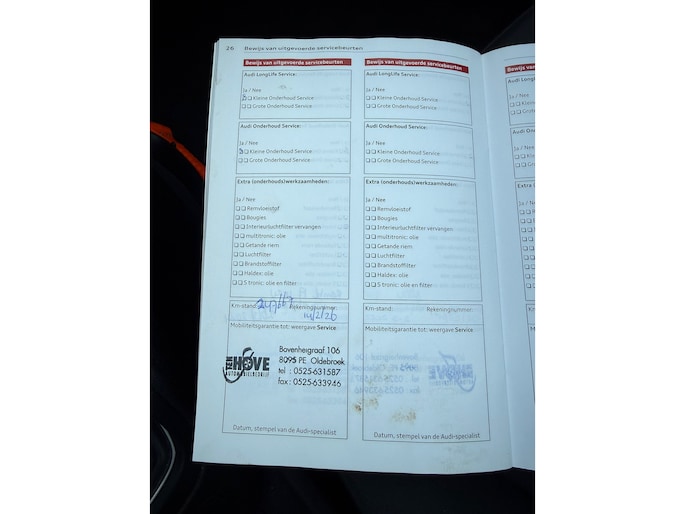 26 Bewijs van uitgevoerde servicebeurten
Bewijs van uitgevoerde servicebeurten
Audi LongLife Service:
Ja / Nee
Kleine Onderhoud Service
Grote Onderhoud Service
Audi Onderhoud Service:
Ja / Nee
Kleine Onderhoud Service
Grote Onderhoud Service
Extra (onderhouds)werkzaamheden:
Ja / Nee
Remvloeistof
Bougies
Interieurluchtfilter vervangen
multitronic: olie
Getande riem
Luchtfilter
Brandstoffilter
Haldex: olie
S tronic: olie en filter
Km-stand: Rekeningnummer:
Mobiliteitsgarantie tot: weergave Service
HOVE
AUTOMOBIELBEDRIJF
Bovenheigraaf 106
8095 PE Oldebroek
tel : 0525-631587
fax : 0525-633946
Datum, stempel van de Audi-specialist
Bewijs van uitgevoerde servicebeurten
Audi LongLife Service:
Ja / Nee
Kleine Onderhoud Service
Grote Onderhoud Service
Audi Onderhoud Service:
Ja / Nee
Kleine Onderhoud Service
Grote Onderhoud Service
Extra (onderhouds)werkzaamheden:
Ja / Nee
Remvloeistof
Bougies
Interieurluchtfilter vervangen
multitronic: olie
Getande riem
Luchtfilter
Brandstoffilter
Haldex: olie
S tronic: olie en filter
Km-stand: Rekeningnummer:
Mobiliteitsgarantie tot: weergave Service
Datum, stempel van de Audi-specialist
Bewijs van uitge
Audi LongLife
Ja / Nee
Audi Onderho
Ja / Nee
Extra (onderh
Ja / Nee
Km-stand:
Mobiliteitsga